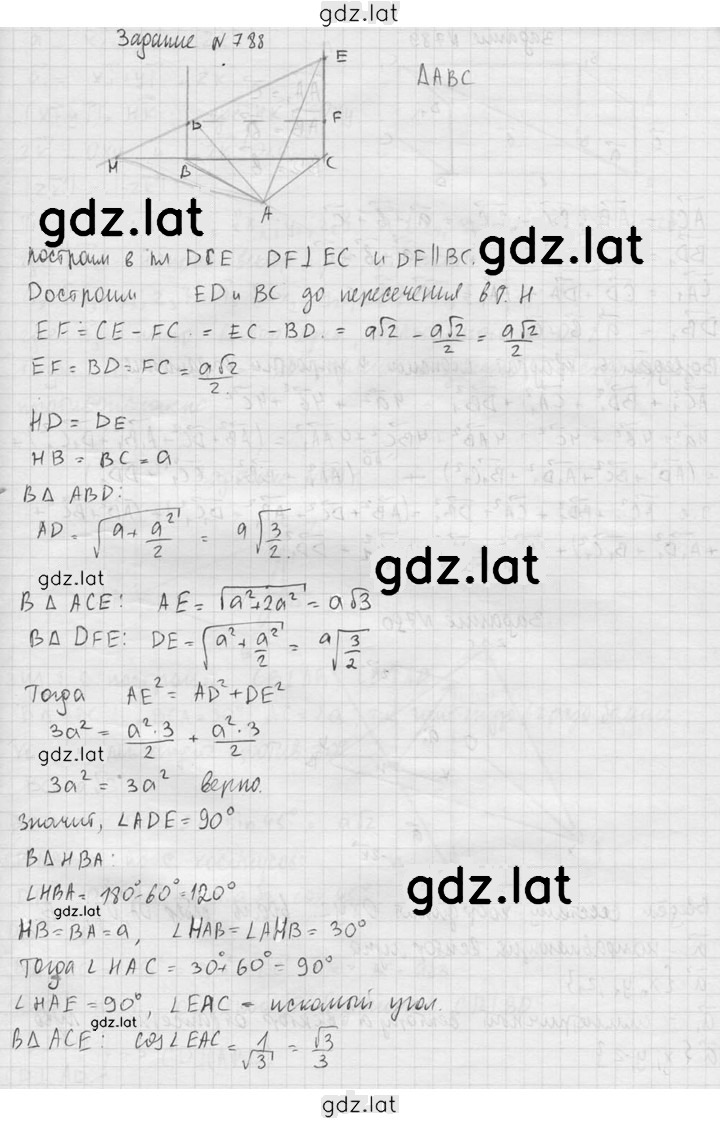 gdz.lat
Задание N 788
E
ΔABC
D
F
H
B
C
A
gdz.lat
gdz.lat
построим в пл DCE DF⊥EC и DF∥BC.
Достроим ED и BC до пересечения в т. H
EF = CE - FC = EC - BD = a√2 - a√2/2 = a√2/2
EF = BD = FC = a√2/2
HD = DE
HB = BC = a
В Δ ABD:
AD = √(a + a²/2) = a√(3/2)
gdz.lat
gdz.lat
В Δ ACE: AE = √(a²+2a²) = a√3
В Δ DFE: DE = √(a² + a²/2) = a√(3/2)
Тогда AE² = AD² + DE²
3a² = a²·3/2 + a²·3/2
gdz.lat
3a² = 3a² верно.
Значит, ∠ADE = 90°
В Δ HBA:
∠HBA = 180°-60°=120°
gdz.lat
gdz.lat
HB = BA = a, ∠HAB = ∠AHB = 30°
Тогда ∠HAC = 30°+60° = 90°
∠HAE = 90°, ∠EAC - искомый угол.
gdz.lat
В Δ ACE: cos∠EAC = 1/√3 = √3/3
gdz.lat